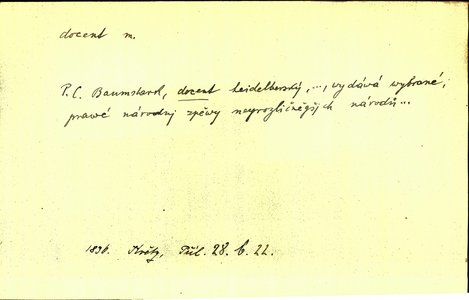 docent m.
P. C. Baumstark, docent heidelberský, ..., vydává wybrané,
prawé národnj zpěwy neyrozličněgšjch národů...
1836. Květy, Příl. 28. b. 22.